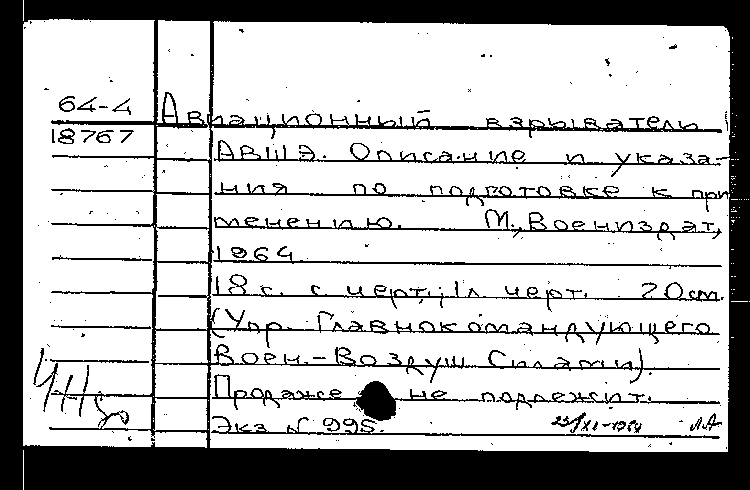 64-4
18767
Авиационный взрыватель
АВШЭ. Описание и указа-
ния по подготовке к при
менению. М., Воениздат,
1964
18 с. с черт.; 1 л. черт. 20 см.
(Упр. Главнокомандующего
Воен.-Воздуш. Силами).
Продаже не подлежит.
Экз N 995.